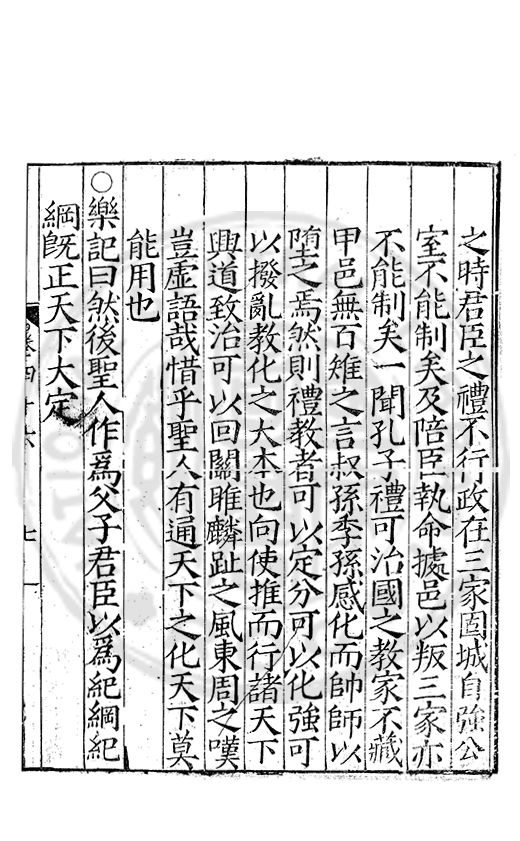 之時君臣之禮不行政在三家固城自強公
室不能制矣及陪臣執命據邑以叛三家亦
不能制矣一聞孔子禮可治國之教家不藏
甲邑無百雉之言叔孫季孫感化而帥師以
堕之焉然則禮教者可以定分可以化強可
以撥亂教化之大本也向使推而行諸天下
興道致治可以回關雎麟趾之風東周之嘆
豈虛語哉惜乎聖人有通天下之化天下莫
能用也
○樂記曰然後聖人作爲父子君臣以爲紀綱紀
綱既正天下大定
卷四十六
七